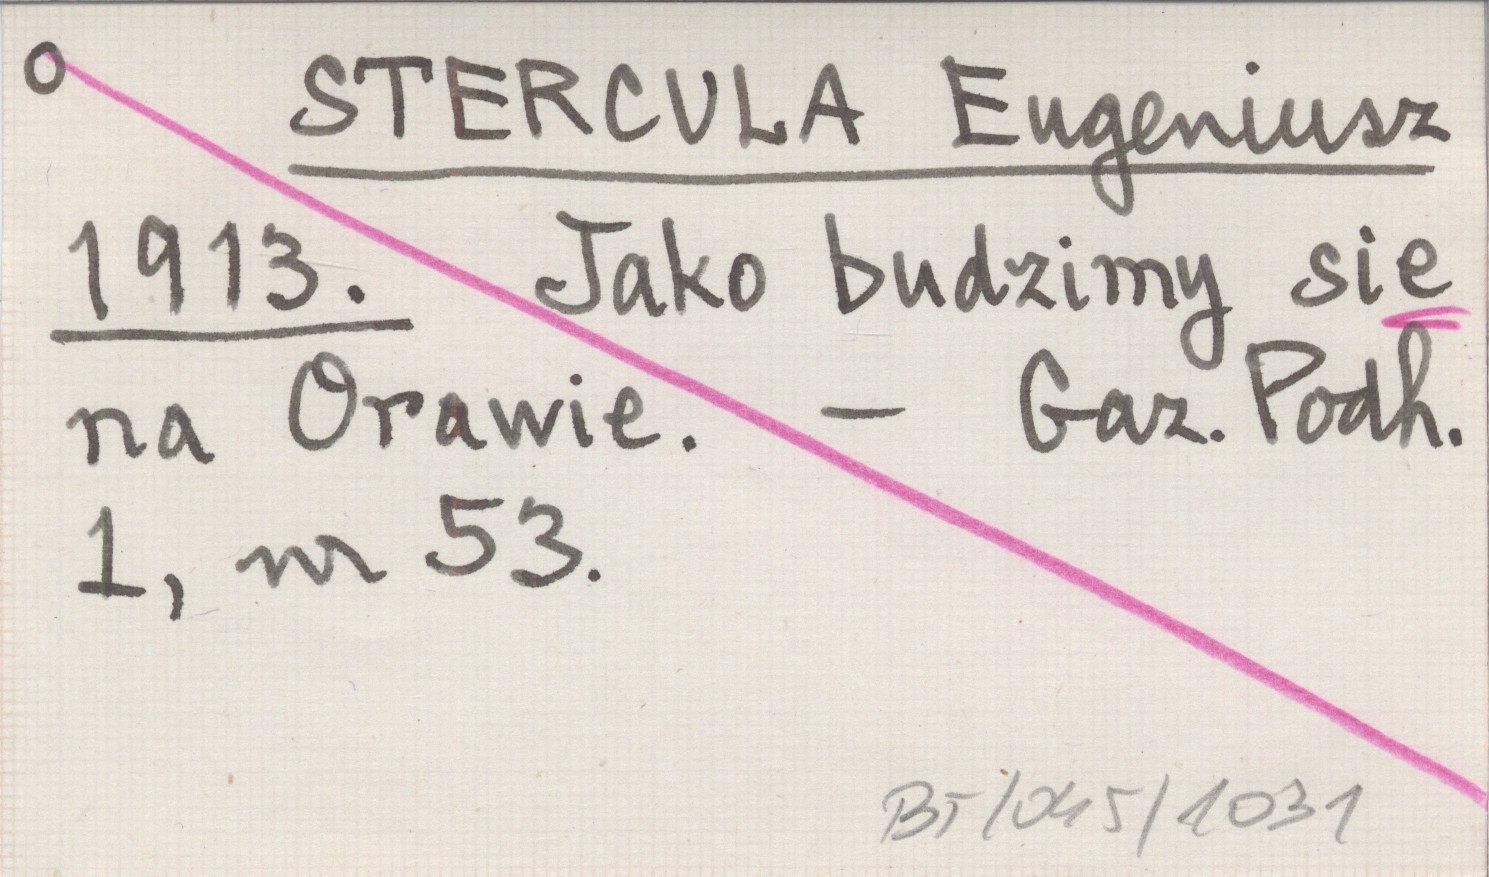 o STERCULA Eugeniusz
1913. Jako budzimy sie
na Orawie. – Gaz. Podh.
1, nr 53.
BT/045/1031